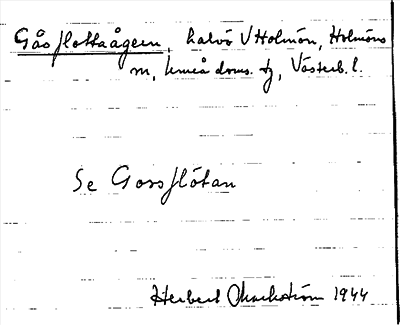 Gåsflottaågern, halvö V Holmön, Holmöns
m, Umeå doms. tg, Västerb. l.
Se Gossflötan
Herbert Markström 1944